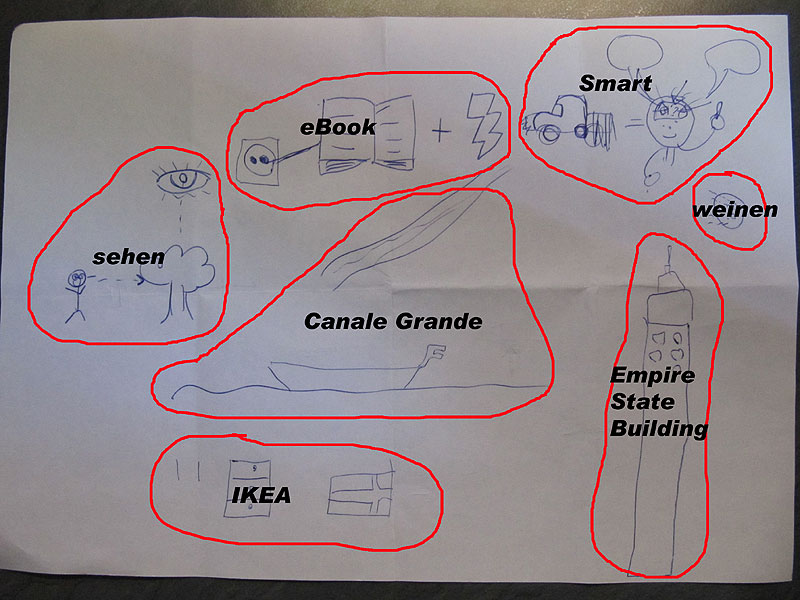 Smart
eBook
weinen
sehen
Canale Grande
Empire
State
Building
IKEA